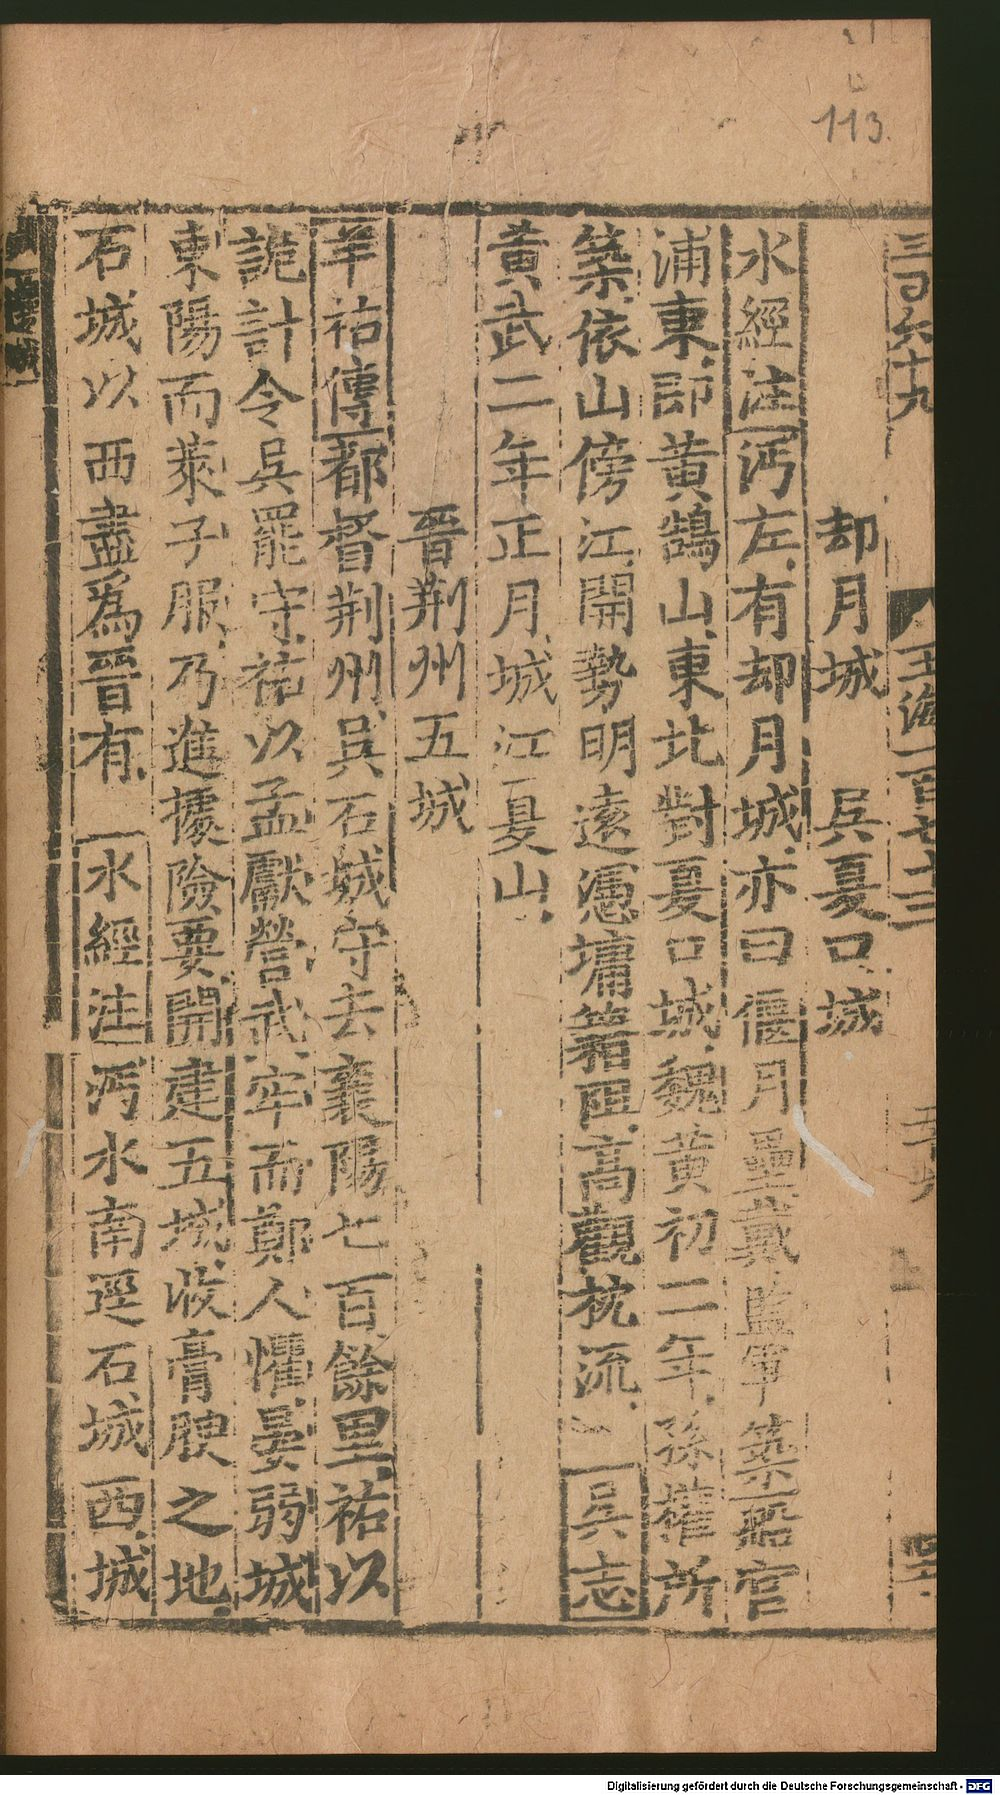 113
三百六十九 玉海一百七十三
却月城 吳夏口城
水經注沔左有却月城亦曰偃月壘戴監軍築船官
浦東即黃鵠山東北對夏口城魏黃初二年孫權所
築依山傍江開勢明遠憑墉籍阻高觀枕流 吳志
黃武二年正月城江夏山
晉荆州五城
羊祜傳都督荆州吳石城守去襄陽七百餘里祜以
詭計令吳罷守祜以孟獻營武牢而鄭人懼晏弱城
東陽而萊子服乃進據險要開建五城收膏腴之地
石城以西盡爲晉有 水經注沔水南逕石城西城
Digitalisierung gefördert durch die Deutsche Forschungsgemeinschaft - DFG